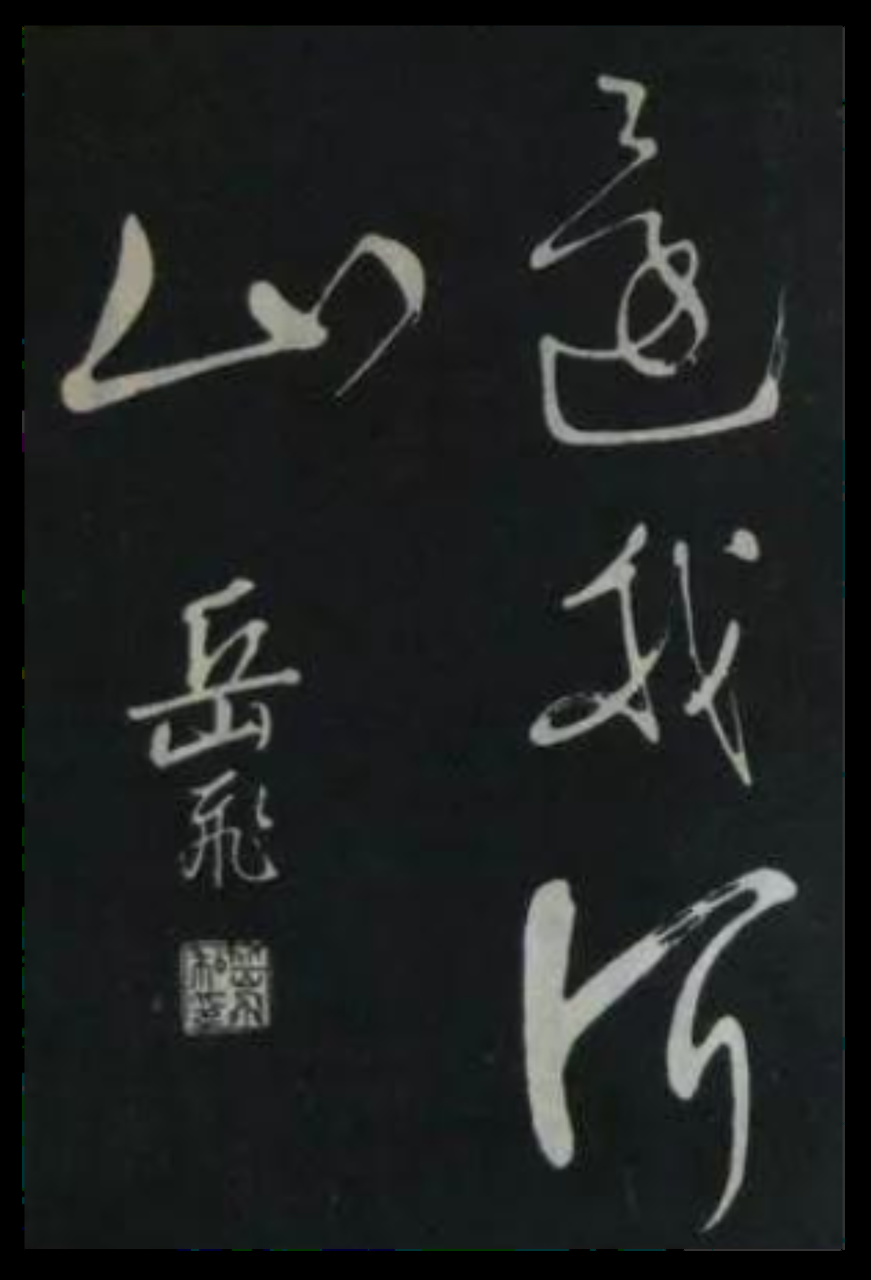 還我河
山
岳飛